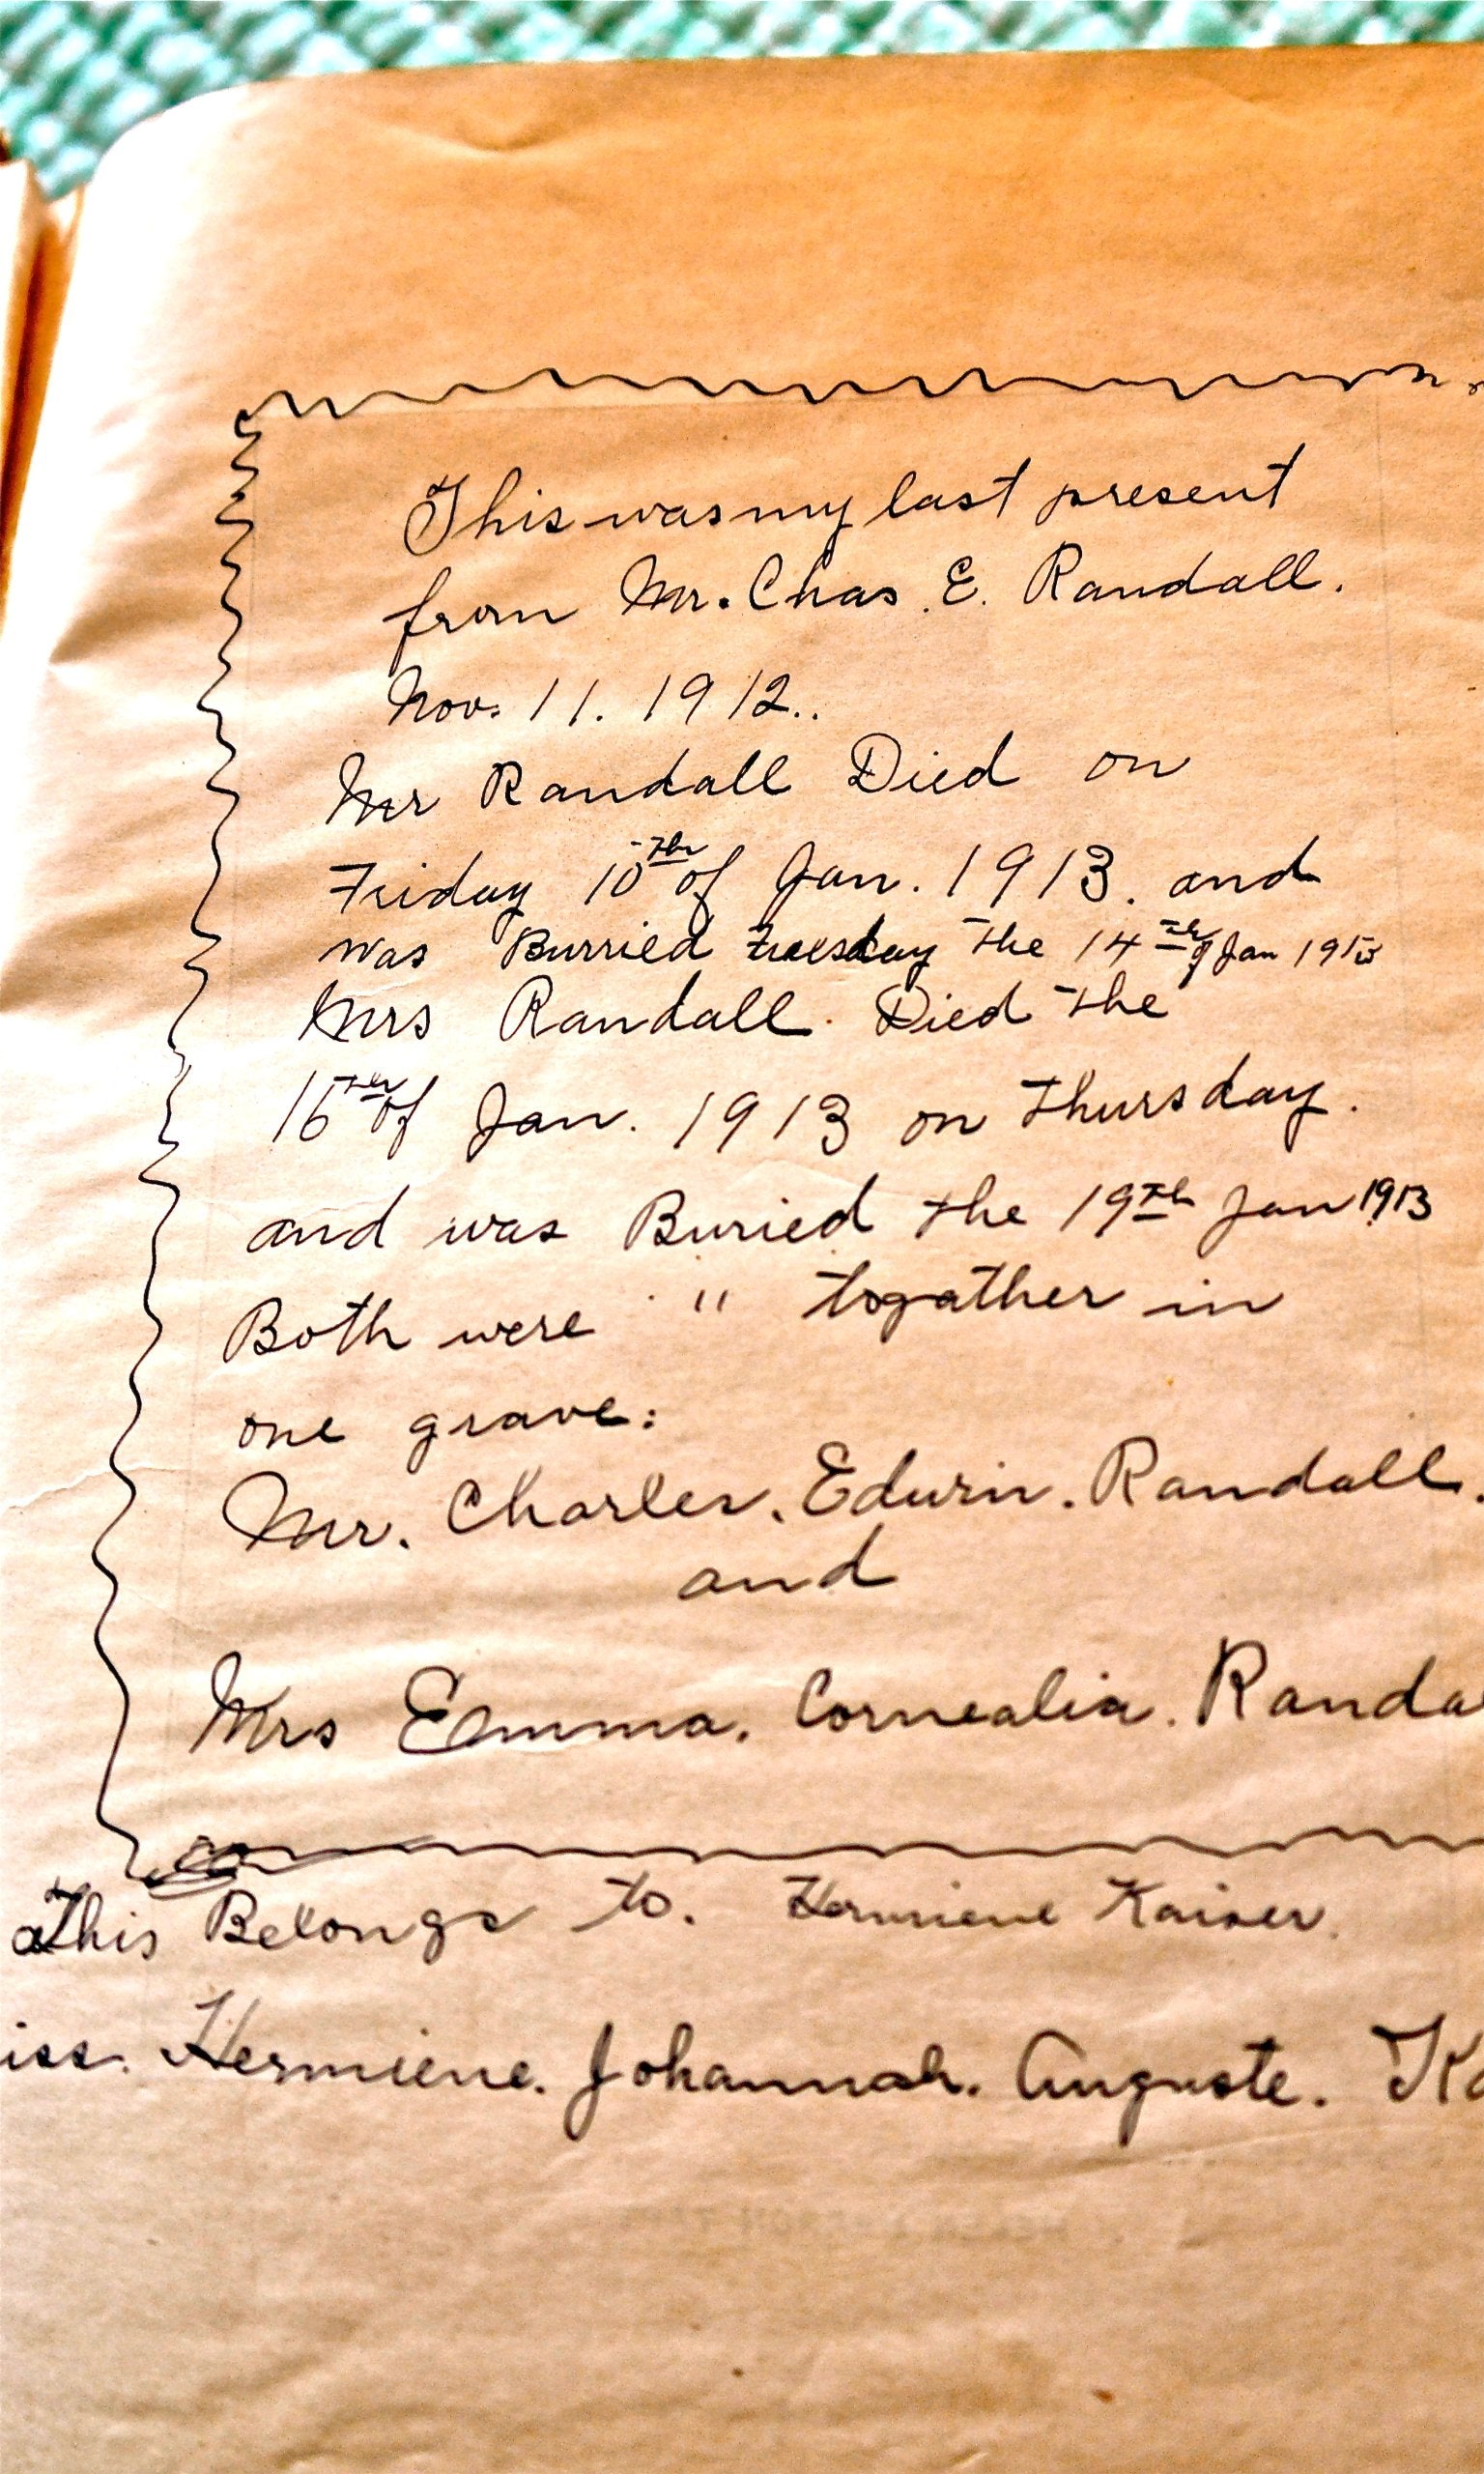 This was my last present
from Mr. Chas. E. Randall.
Nov. 11. 1912..
Mr Randall Died on
Friday 10th of Jan. 1913. and
was Burried Tuesday the 14th of Jan 1913
Mrs Randall. Died the
16th of Jan. 1913 on Thursday.
and was Buried the 19th Jan 1913
Both were " togather in
one grave:
Mr. Charles. Edwin. Randall.
and
Mrs Emma. Cornealia. Randa
This Belongs to. Hermiene Kaiser.
iss. Hermiene. Johannah. Auguste. Ka